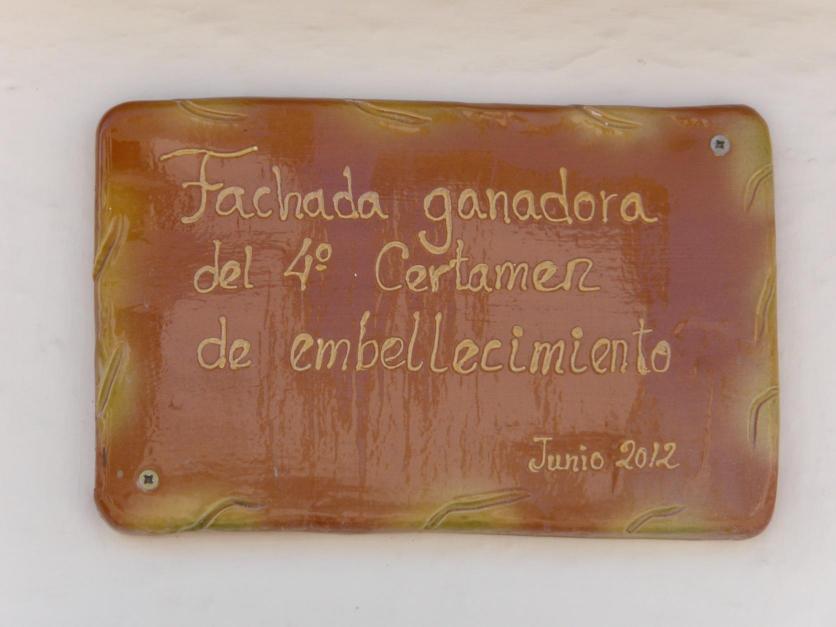 Fachada ganadora
del 4º Certamen
de embellecimiento
Junio 2012